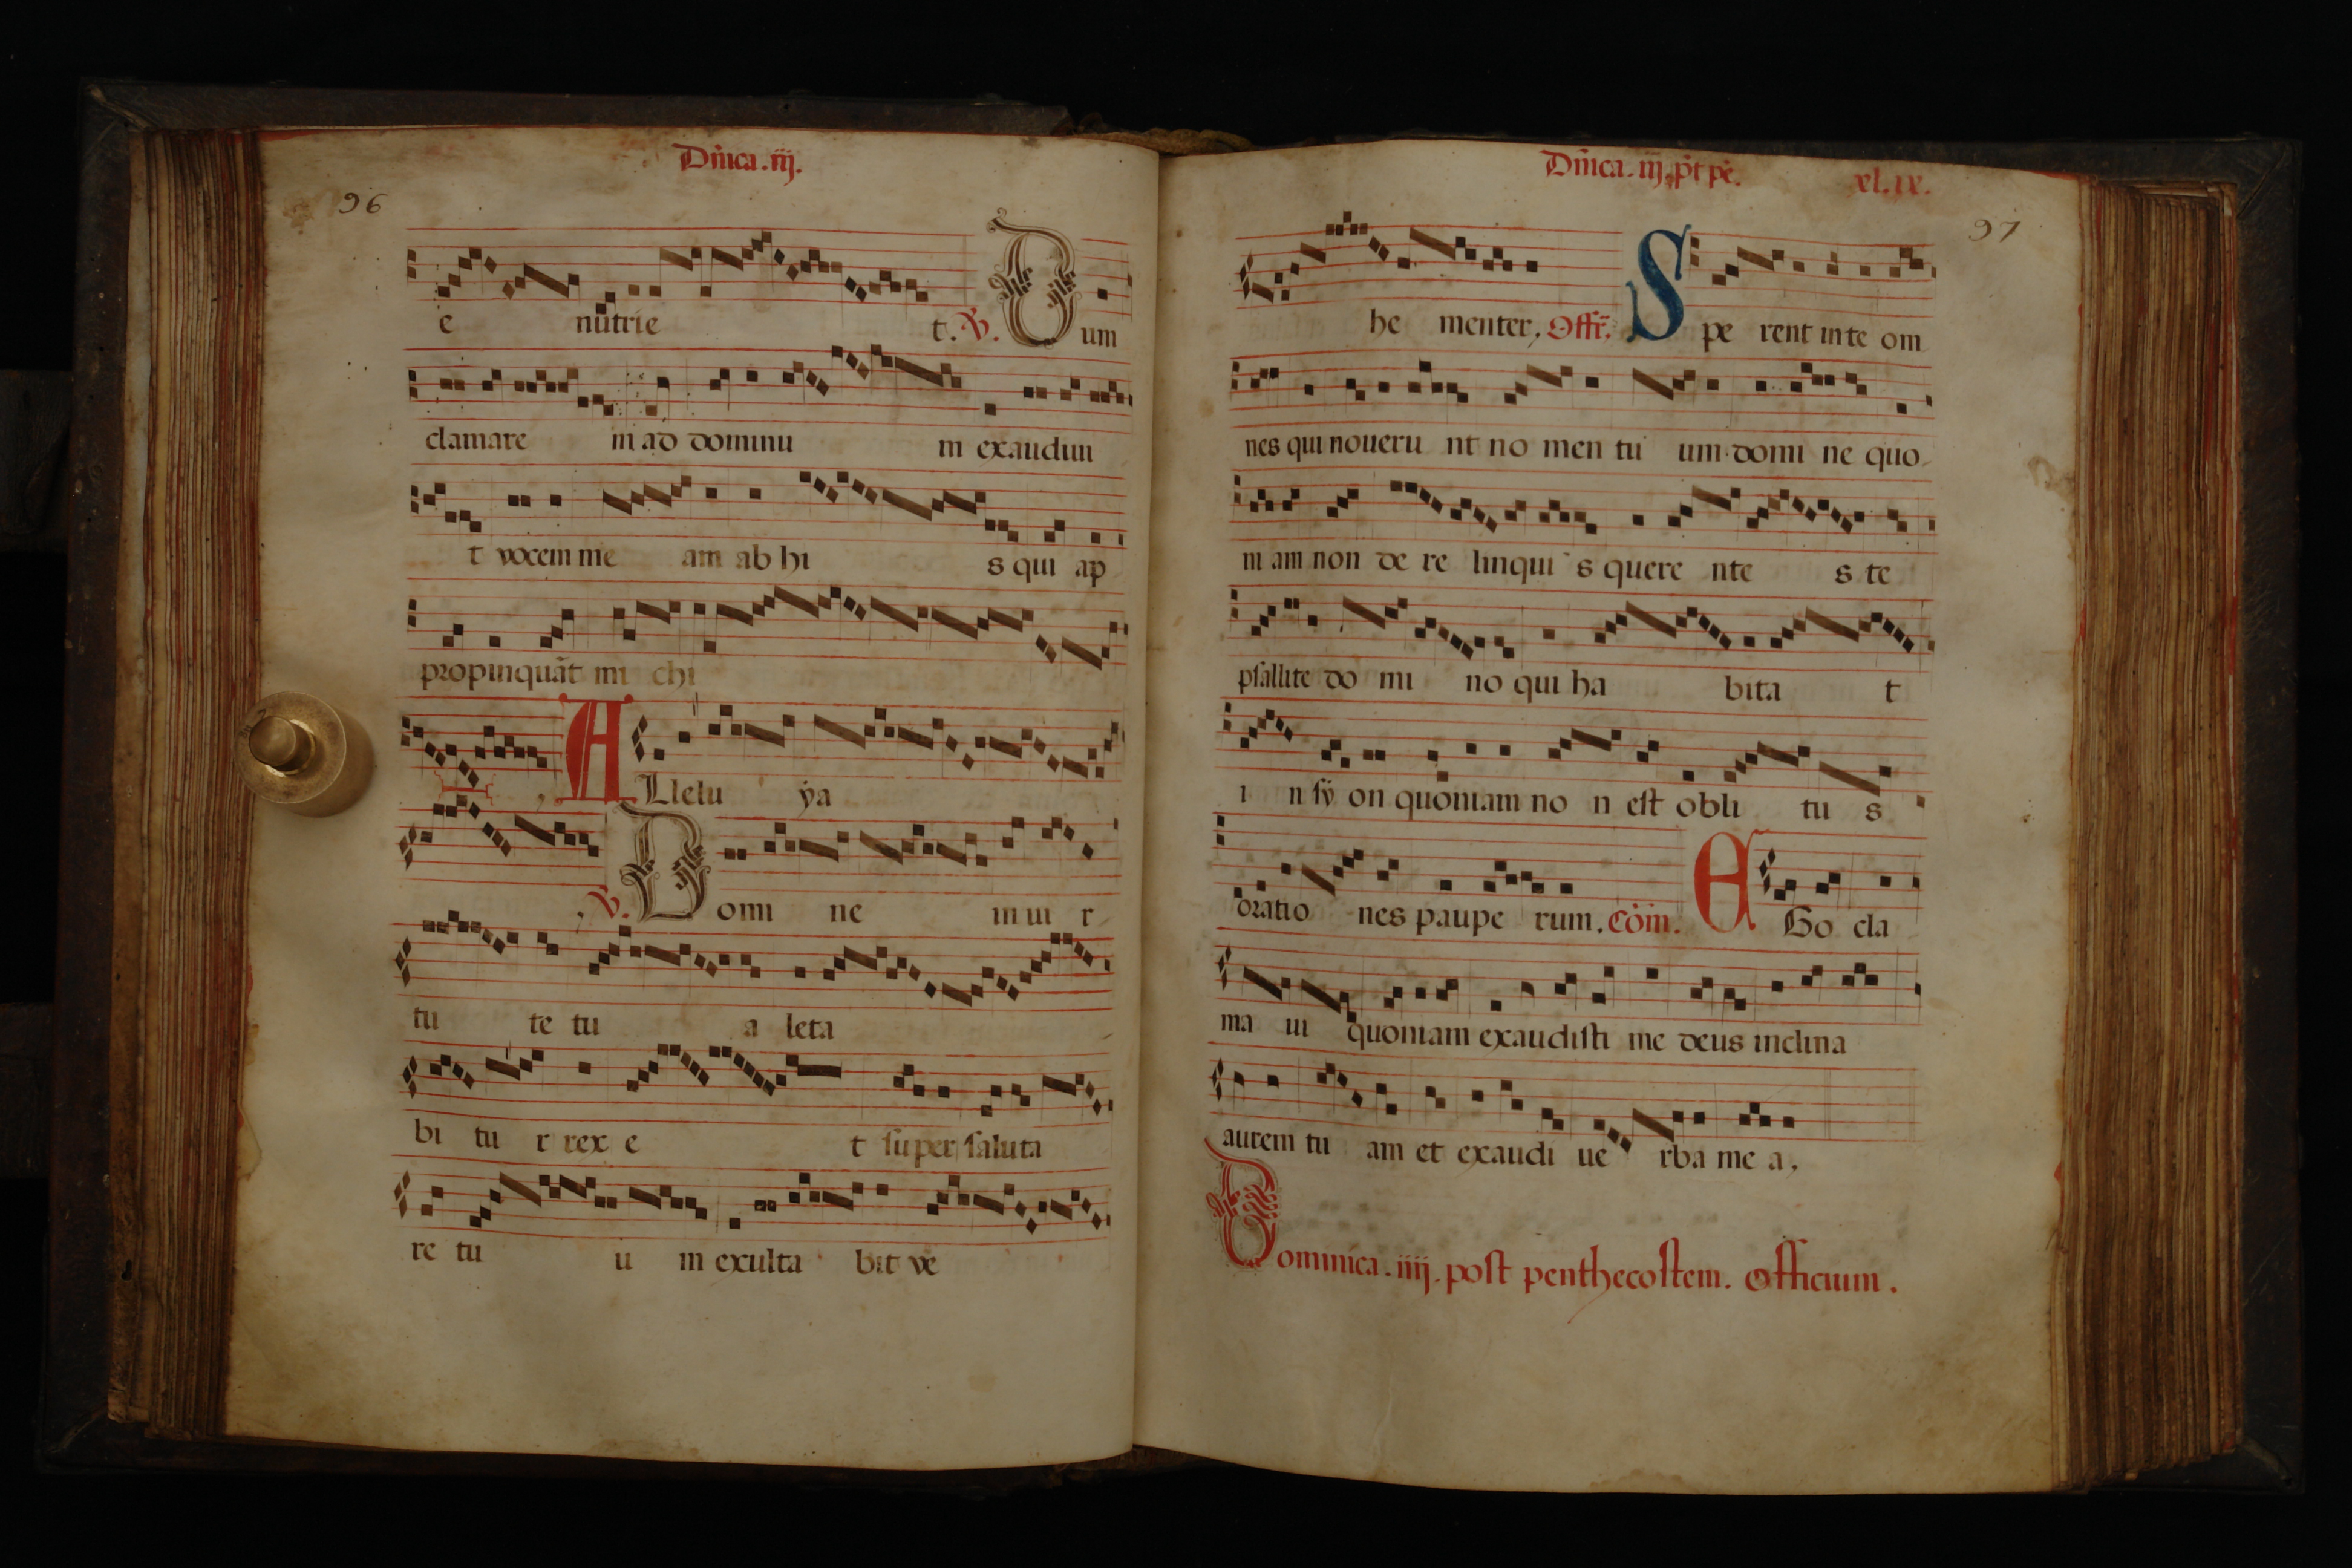 Dñica.iij.
96
e nutrie t. V. Dum
clamare m ad dominu m exaudiui
t vocem me am ab hi s qui ap
propinquāt mi chi
ALlelu ẏa
. V. Domi ne in uir
tu te tu a leta
bi tu r rex e t super saluta
re tu u m exulta bit ve
Dñica.iij.p̄t pē. xl.ix.
97
he menter, Offr̄. Spe rent in te om
nes qui noueru nt no men tu um domi ne quo
ni am non de re linqui s quere nte s te
psallite do mi no qui ha bita t
i n sẏ on quoniam no n est obli tu s
oratio nes paupe rum. cōm. EGo cla
ma ui quoniam exaudisti me deus inclina
aurem tu am et exaudi ue rba me a,
Dominica.iiij.post penthecostem. Officium.